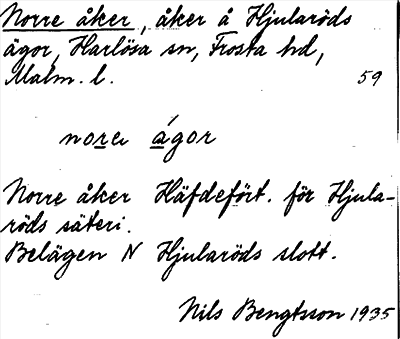 Norre åker, åker å Hjularöds
ägor, Harlösa sn, Frosta hd,
Malm. l. 59
nore ágor
Norre åker Häfdefört. för Hjula-
röds säteri.
Belägen N Hjularöds slott.
Nils Bengtsson 1935